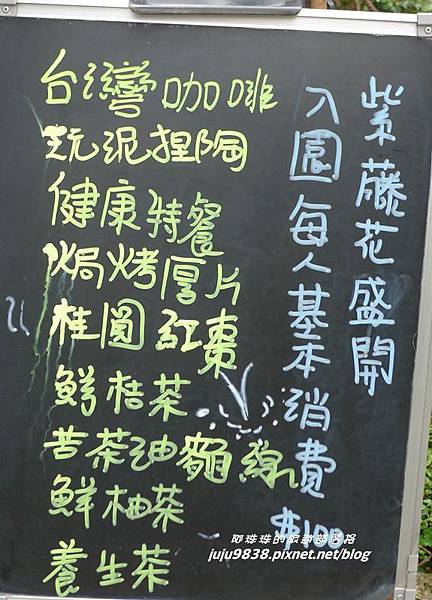 紫藤花盛開
入園每人基本消費$100
台灣咖啡
玩泥捏陶
健康特餐
焗烤厚片
桂圓紅棗
鮮桔茶
苦茶油麵線
鮮柚茶
養生茶
阿珠珠的旅遊部落格
juju9838.pixnet.net/blog